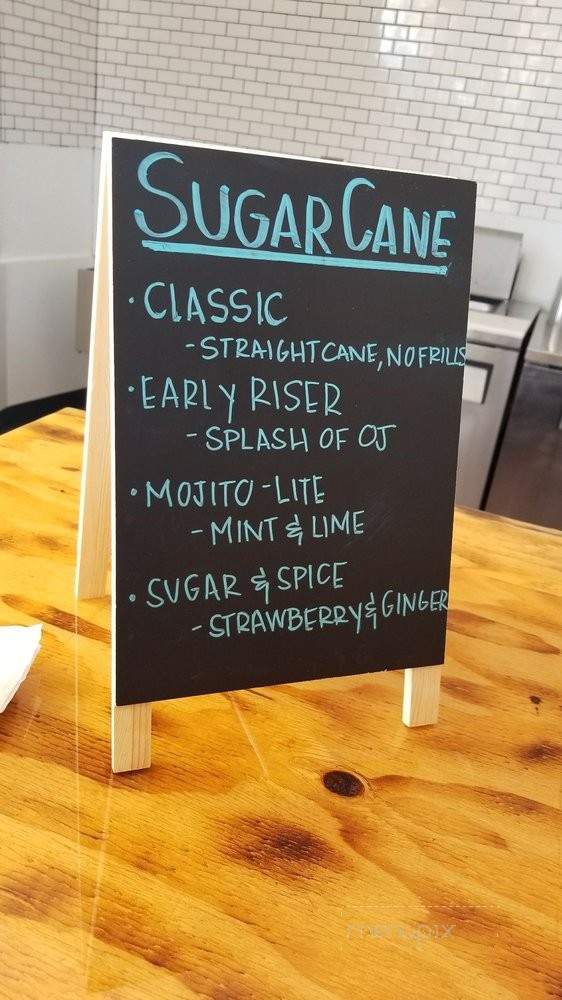 SUGAR CANE
· CLASSIC
- STRAIGHT CANE, NO FRILLS
· EARLY RISER
- SPLASH OF OJ
· MOJITO-LITE
- MINT & LIME
· SUGAR & SPICE
- STRAWBERRY & GINGER
menupix